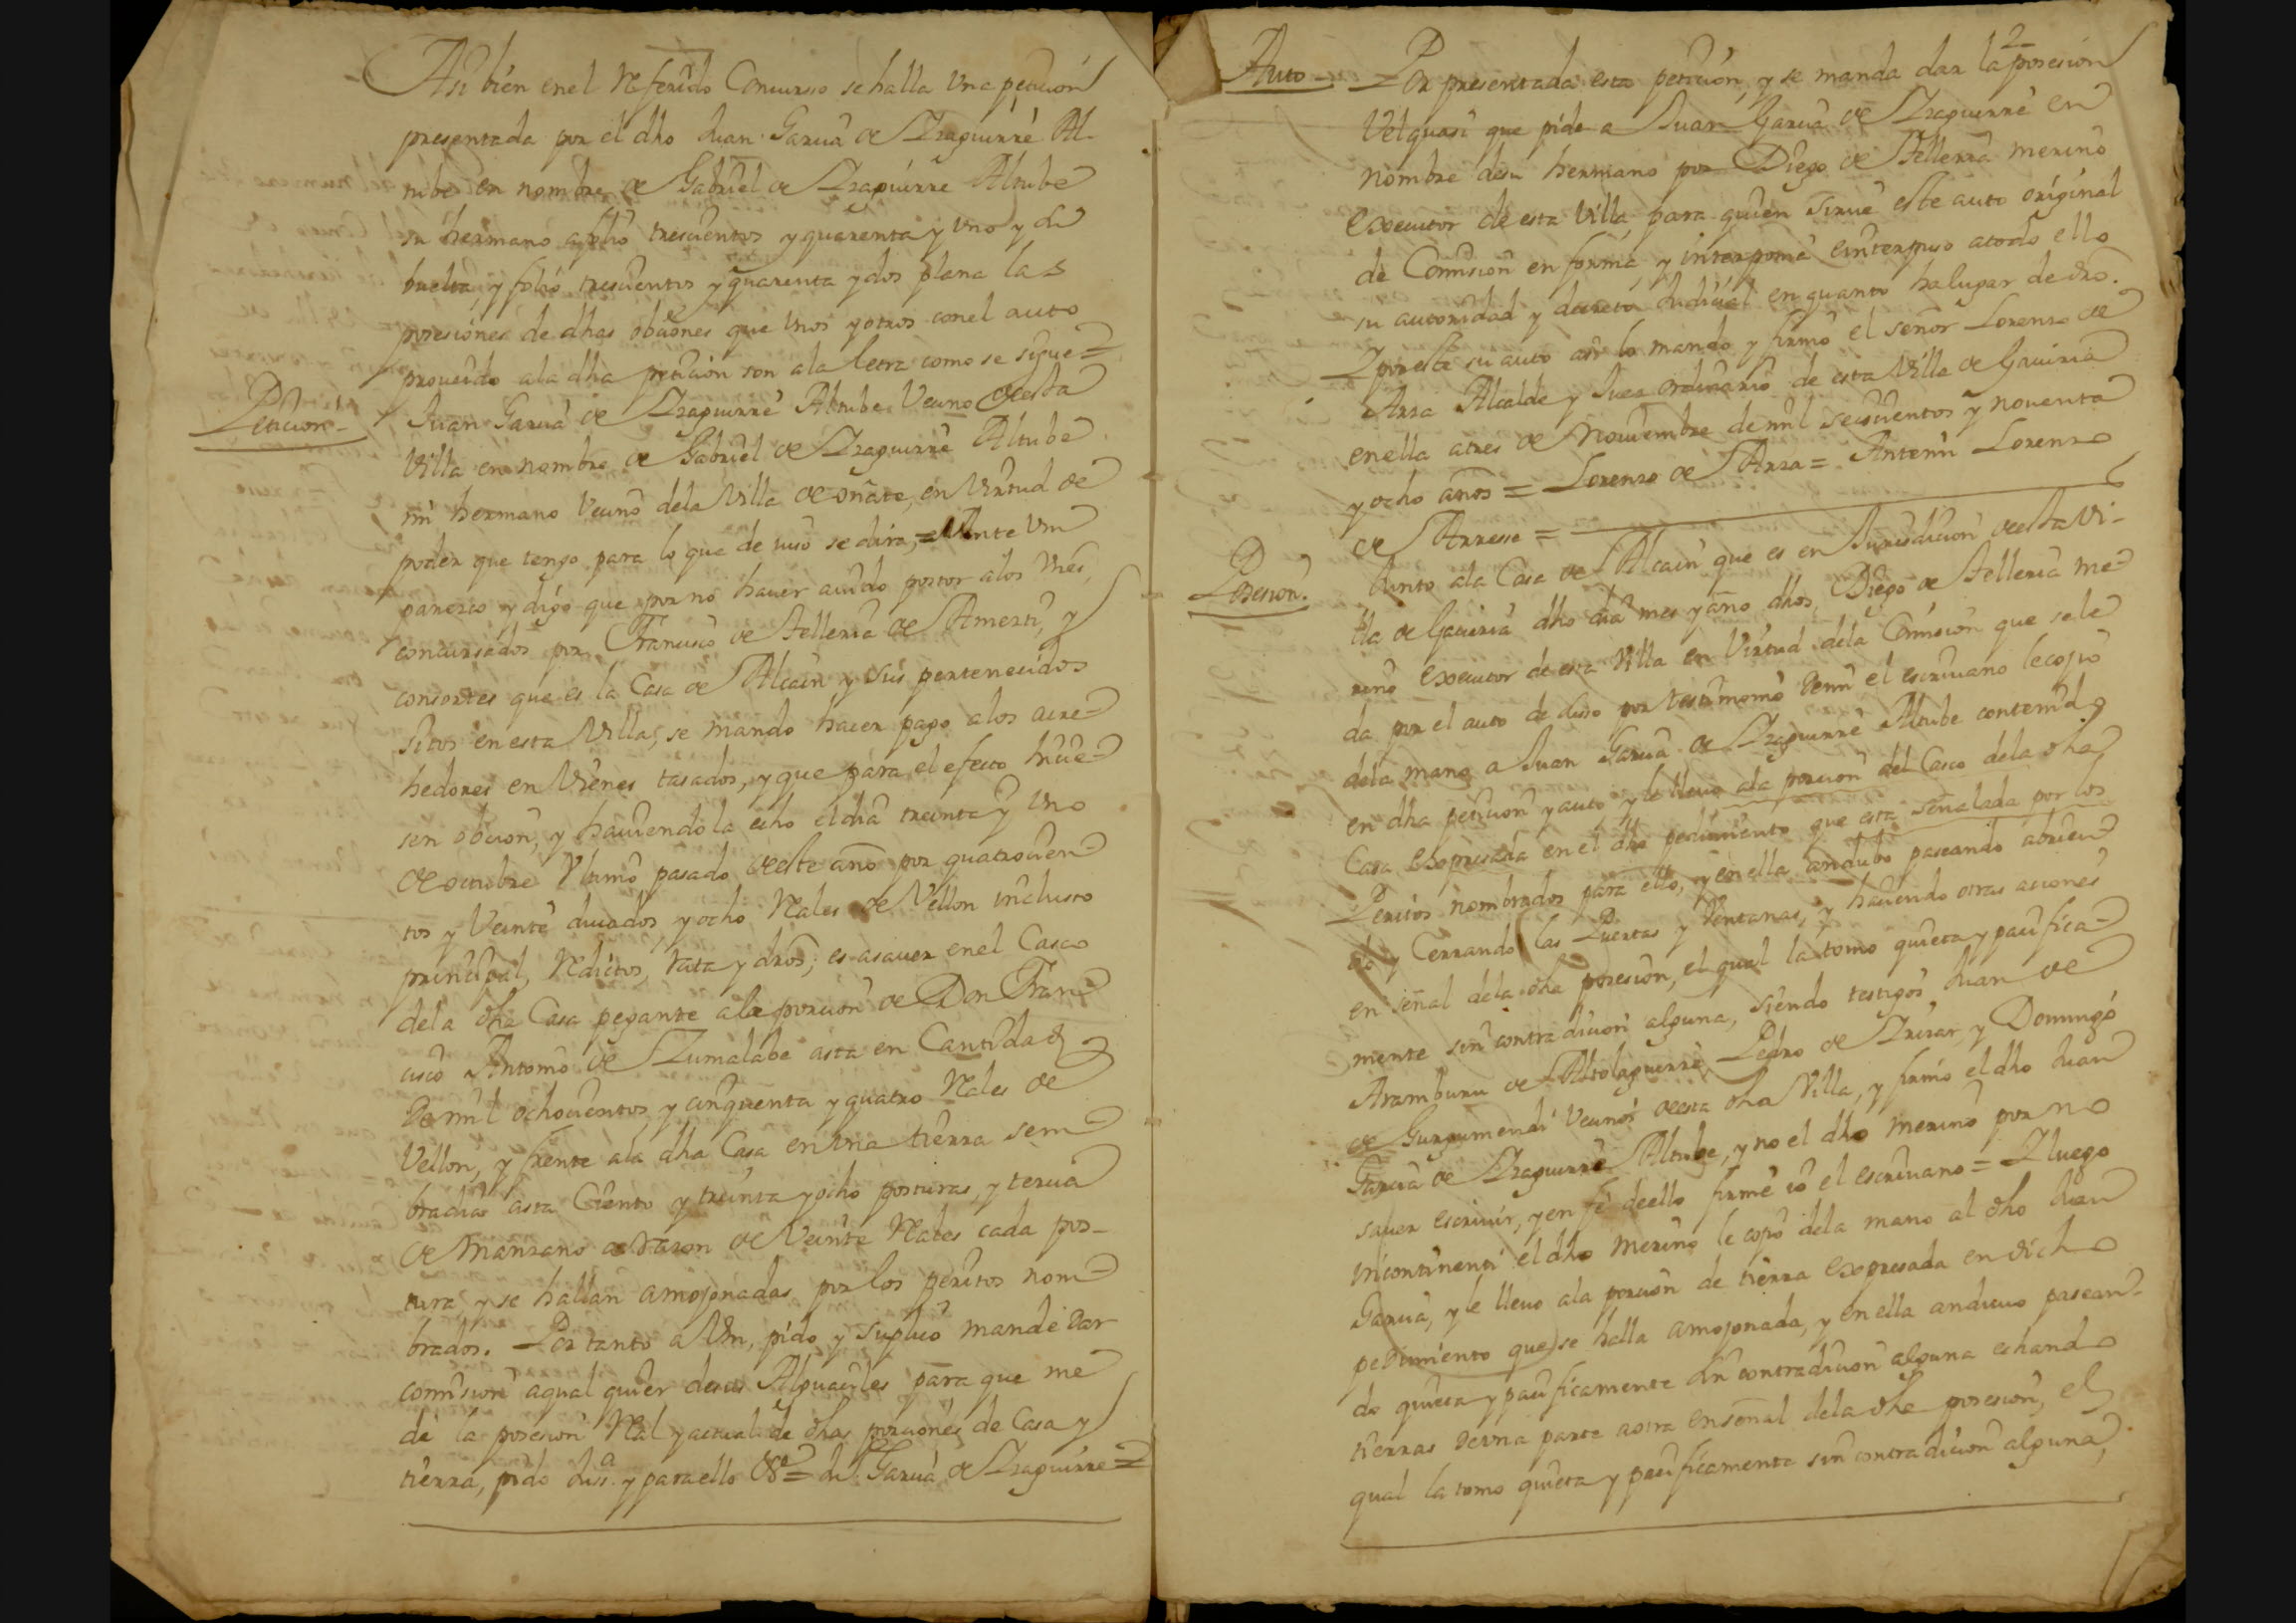 Asi bien en el Referido Concurso se halla Una peticion
presentada por el dho Juan Garcia de Yzaguirre Al-
tube en nombre de Gabriel de Yzaguirre Altube
su hermano a folio trescientos y quarenta y Uno y su
buelta, y folio trescientos y quarenta y dos plana las
posesiones de dhas obciones que Unos y otros con el auto
proueido a la dha peticion son a la letra como se sigue =
Peticion - Juan Garcia de Yzaguirre Altube Vecino de esta
Villa en nombre de Gabriel de Yzaguirre Altube
mi hermano Vecino de la Villa de oñate, en Virtud de
poder que tengo para lo que de iuso se dira, = Ante Vm
parezco y digo que por no hauer auido postor a los Vnes,
concursados por Francisco de Telleria de Amezti, y
consortes que es la Casa de Alcain y sus pertenecidos
sitos en esta Villa, se mando hacer pago a los acre=
hedores en Vienes tasados, y que para el efecto hicie=
sen obcion, y hauiendola echo el dia treinta y Uno
de octubre Vltimo pasado de este año por quatrocien=
tos y Veinte ducados y ocho Reales de Vellon incluso
principal, Reditos, rata y dros; es asauer en el Casco
de la dha Casa pegante a la porcion de Don Fran=
cisco Antonio de Zumalabe asta en Cantidad
De mil ochocientos y cinquenta y quatro Reales de
Vellon, y frente a la dha Casa en Una tierra sem=
bradia asta Ciento y treinta y ocho posturas, y tercia
de Manzano a razon de Veinte Reales cada pos-
tura, y se hallan amojonadas por los peritos nom=
brados. Por tanto a Vm, pido y suplico mande Dar
comision a qual quier de sus Alguaciles para que me
dè la posesion Real y actual de dhas porciones de Casa y
tierra, pido Jus.a y para ello &a = Ju.o Garcia de Yzaguirre =
2
Auto - Por presentada esta peticion, y se manda dar la posesion
Vel quasi que pide a Juan Garcia de Yzaguirre en
nombre de su hermano por Diego de Telleria merino
Executor de esta Villa, para quien sirue este auto original
de Comision en forma, y interponia e interpuso a todo ello
su autoridad y decreto Judicial en quanto ha lugar de dro.
Y por este su auto asi lo mando y firmo el señor Lorenzo de
Arza Alcalde y Juez ordinario de esta Villa de Gauiria
en ella a tres de Nouiembre de mil seiscientos y nouenta
y ocho años = Lorenzo de Arza = Antemi Lorenzo
de Arresse =
Posesion. Junto a la Casa de Alcain que es en Jurisdicion de esta Vi-
lla de Gauiria dho dia mes y año dhos, Diego de Telleria me=
rino Executor de esta Villa en Virtud de la Comision que se le
da por el auto de suso por testimonio De mi el escriuano le cojio
de la mano a Juan Garcia de Yzaguirre Altube contenido
en dha peticion y auto, y le lleuo a la porcion del Casco de la dha
Casa Expresada en el dho pedimiento que esta señalada por los
Peritos nombrados para ello, y en ella andubo paseando abrien=
do y Cerrando las Puertas y Ventanas, y haciendo otras acciones
en señal de la dha posesion, el qual la tomo quieta y pacifica=
mente sin contradicion alguna, siendo testigos Juan de
Aramburu de Altolaguirre, Pedro de Yrizar, y Domingo
de Gurrumendi Vecinos de esta dha Villa, y firmo el dho Juan
Garcia de Yzaguirre Altube, y no el dho merino por no
sauer escriuir, y en fe de ello firme io el escriuano = Y luego
incontinenti el dho Merino le cojio de la mano al dho Juan
Garcia, y le lleuo a la porcion de tierra Expresada en dicho
pedimiento que se halla amojonada, y en ella anduuo pasean-
do quieta y pacificamente sin contradicion alguna echando
tierras De Una parte a otra en señal de la dha posesion, el
qual la tomo quieta y pacificamente sin contradicion alguna,